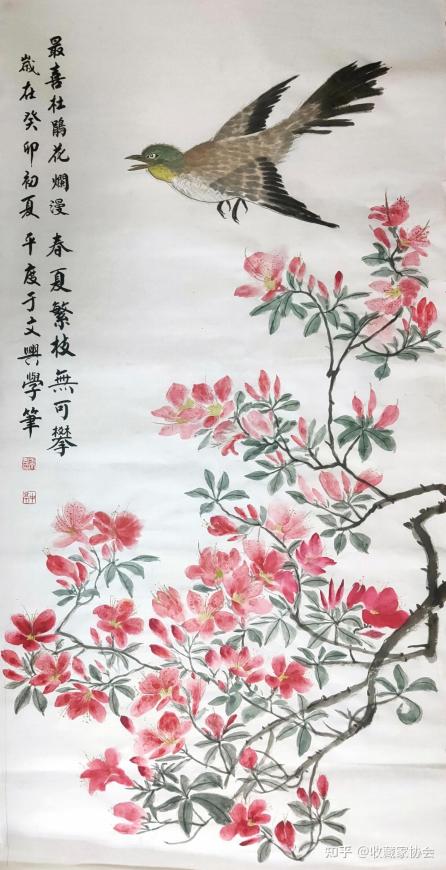 最喜杜鹃花烂漫 春夏繁枝無可攀
歲在癸卯初夏 平度于文興學筆
知乎 @收藏家协会